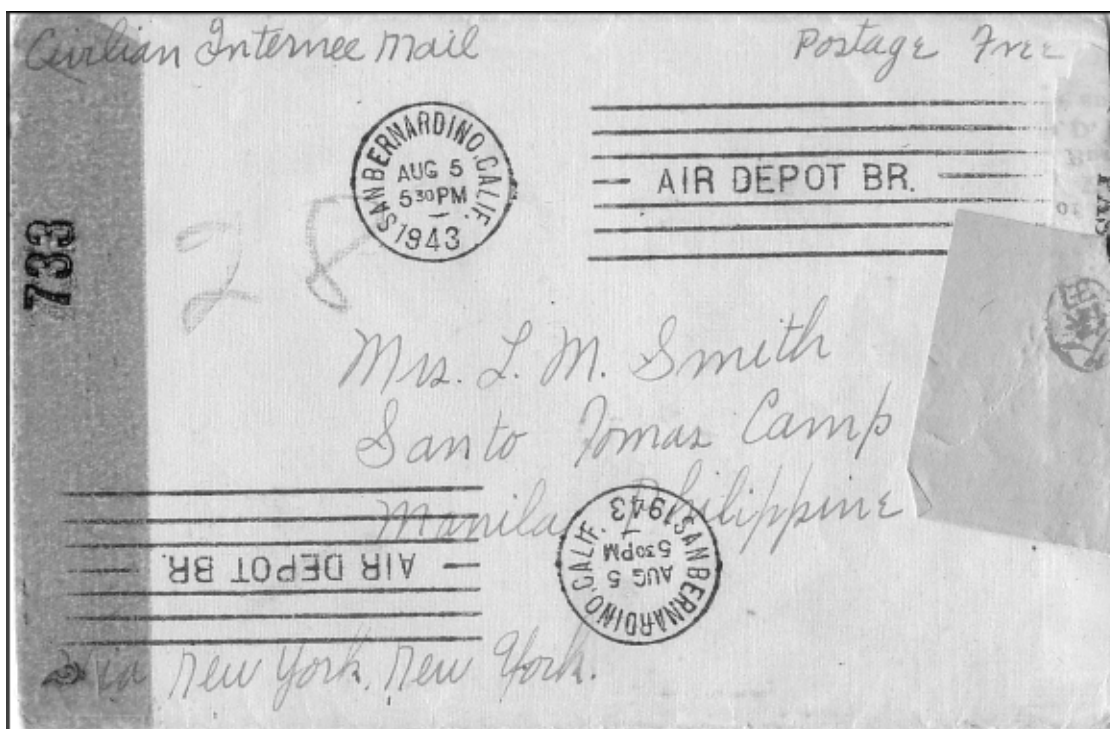 Civilian Internee Mail
Postage Free
SAN BERNARDINO, CALIF.
AUG 5
5 30 PM
1943
AIR DEPOT BR.
733
28
Mrs. L. M. Smith
Santo Tomas Camp
Manila Philippine
AIR DEPOT BR.
SAN BERNARDINO, CALIF.
AUG 5
5 30 PM
1943
Via New York, New York.